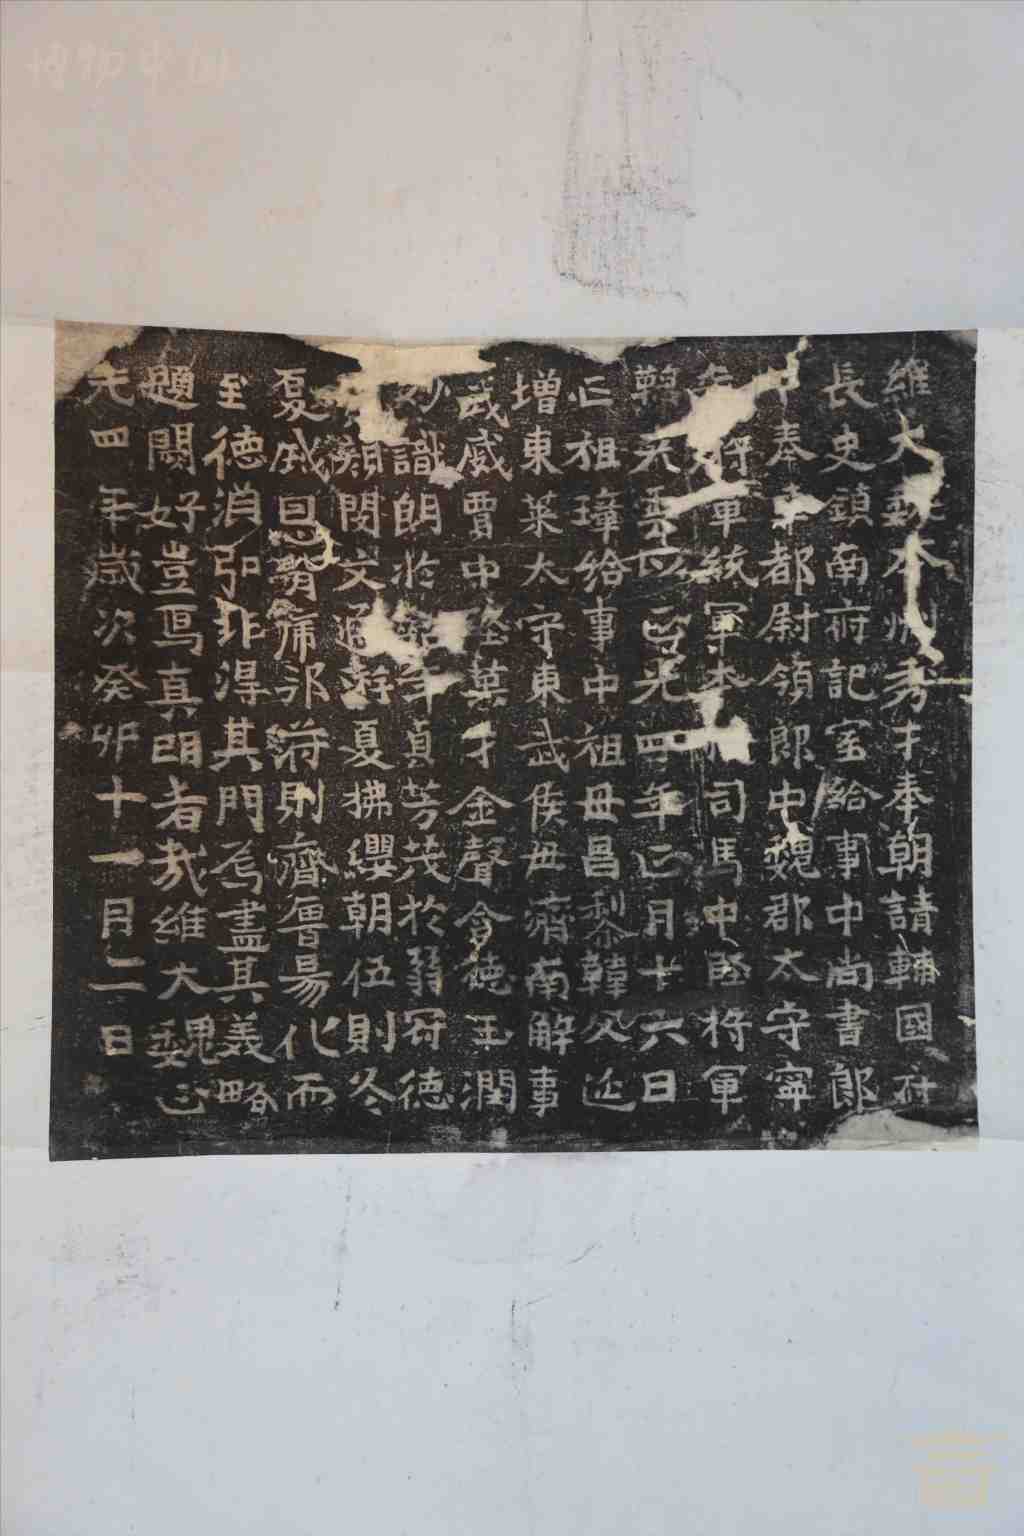 維大魏本州秀才奉朝請輔國府
長史鎮南府記室給事中尚書郎
中奉車都尉領郎中魏郡太守寧
將軍統軍本州司馬中堅將軍
韓玄 正光四年正月十六日
亡祖璋給事中祖母昌黎韓父延
增東萊太守東武侯母濟南解事
武威賈中 葉才金聲含德玉潤
妙識朗於 年貞芳茂於弱冠德
類閔文通游夏拂纓朝伍則冬
夏威恩剖苻 符則齊魯易化而
至德消弘非淂其門焉盡其美略
題闕好豈焉真朗者哉維大魏正
光四年歲次癸卯十一月二日
博物中国